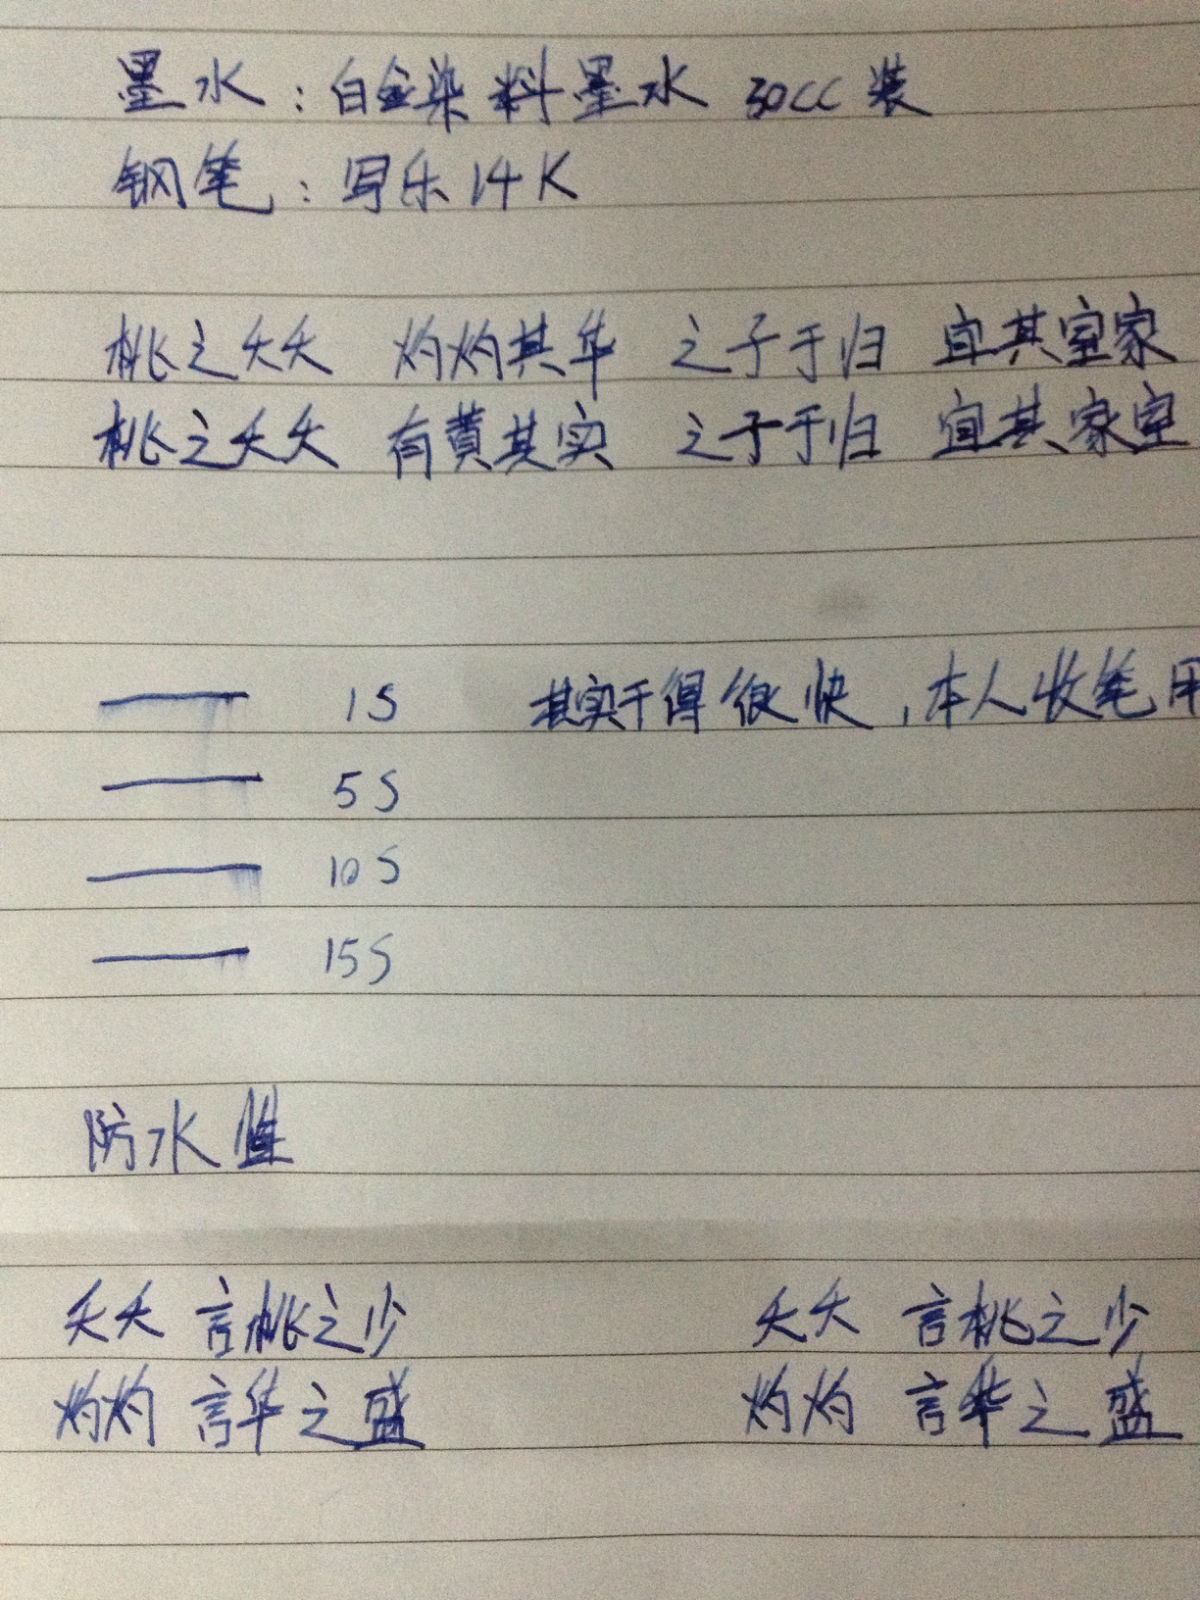 墨水：白金染料墨水 30CC 装
钢笔：写乐 14K
桃之夭夭 灼灼其华 之子于归 宜其室家
桃之夭夭 有蕡其实 之子于归 宜其家室
1S 其实干得很快，本人收笔用
5S
10S
15S
防水性
夭夭 言桃之少 夭夭 言桃之少
灼灼 言华之盛 灼灼 言华之盛